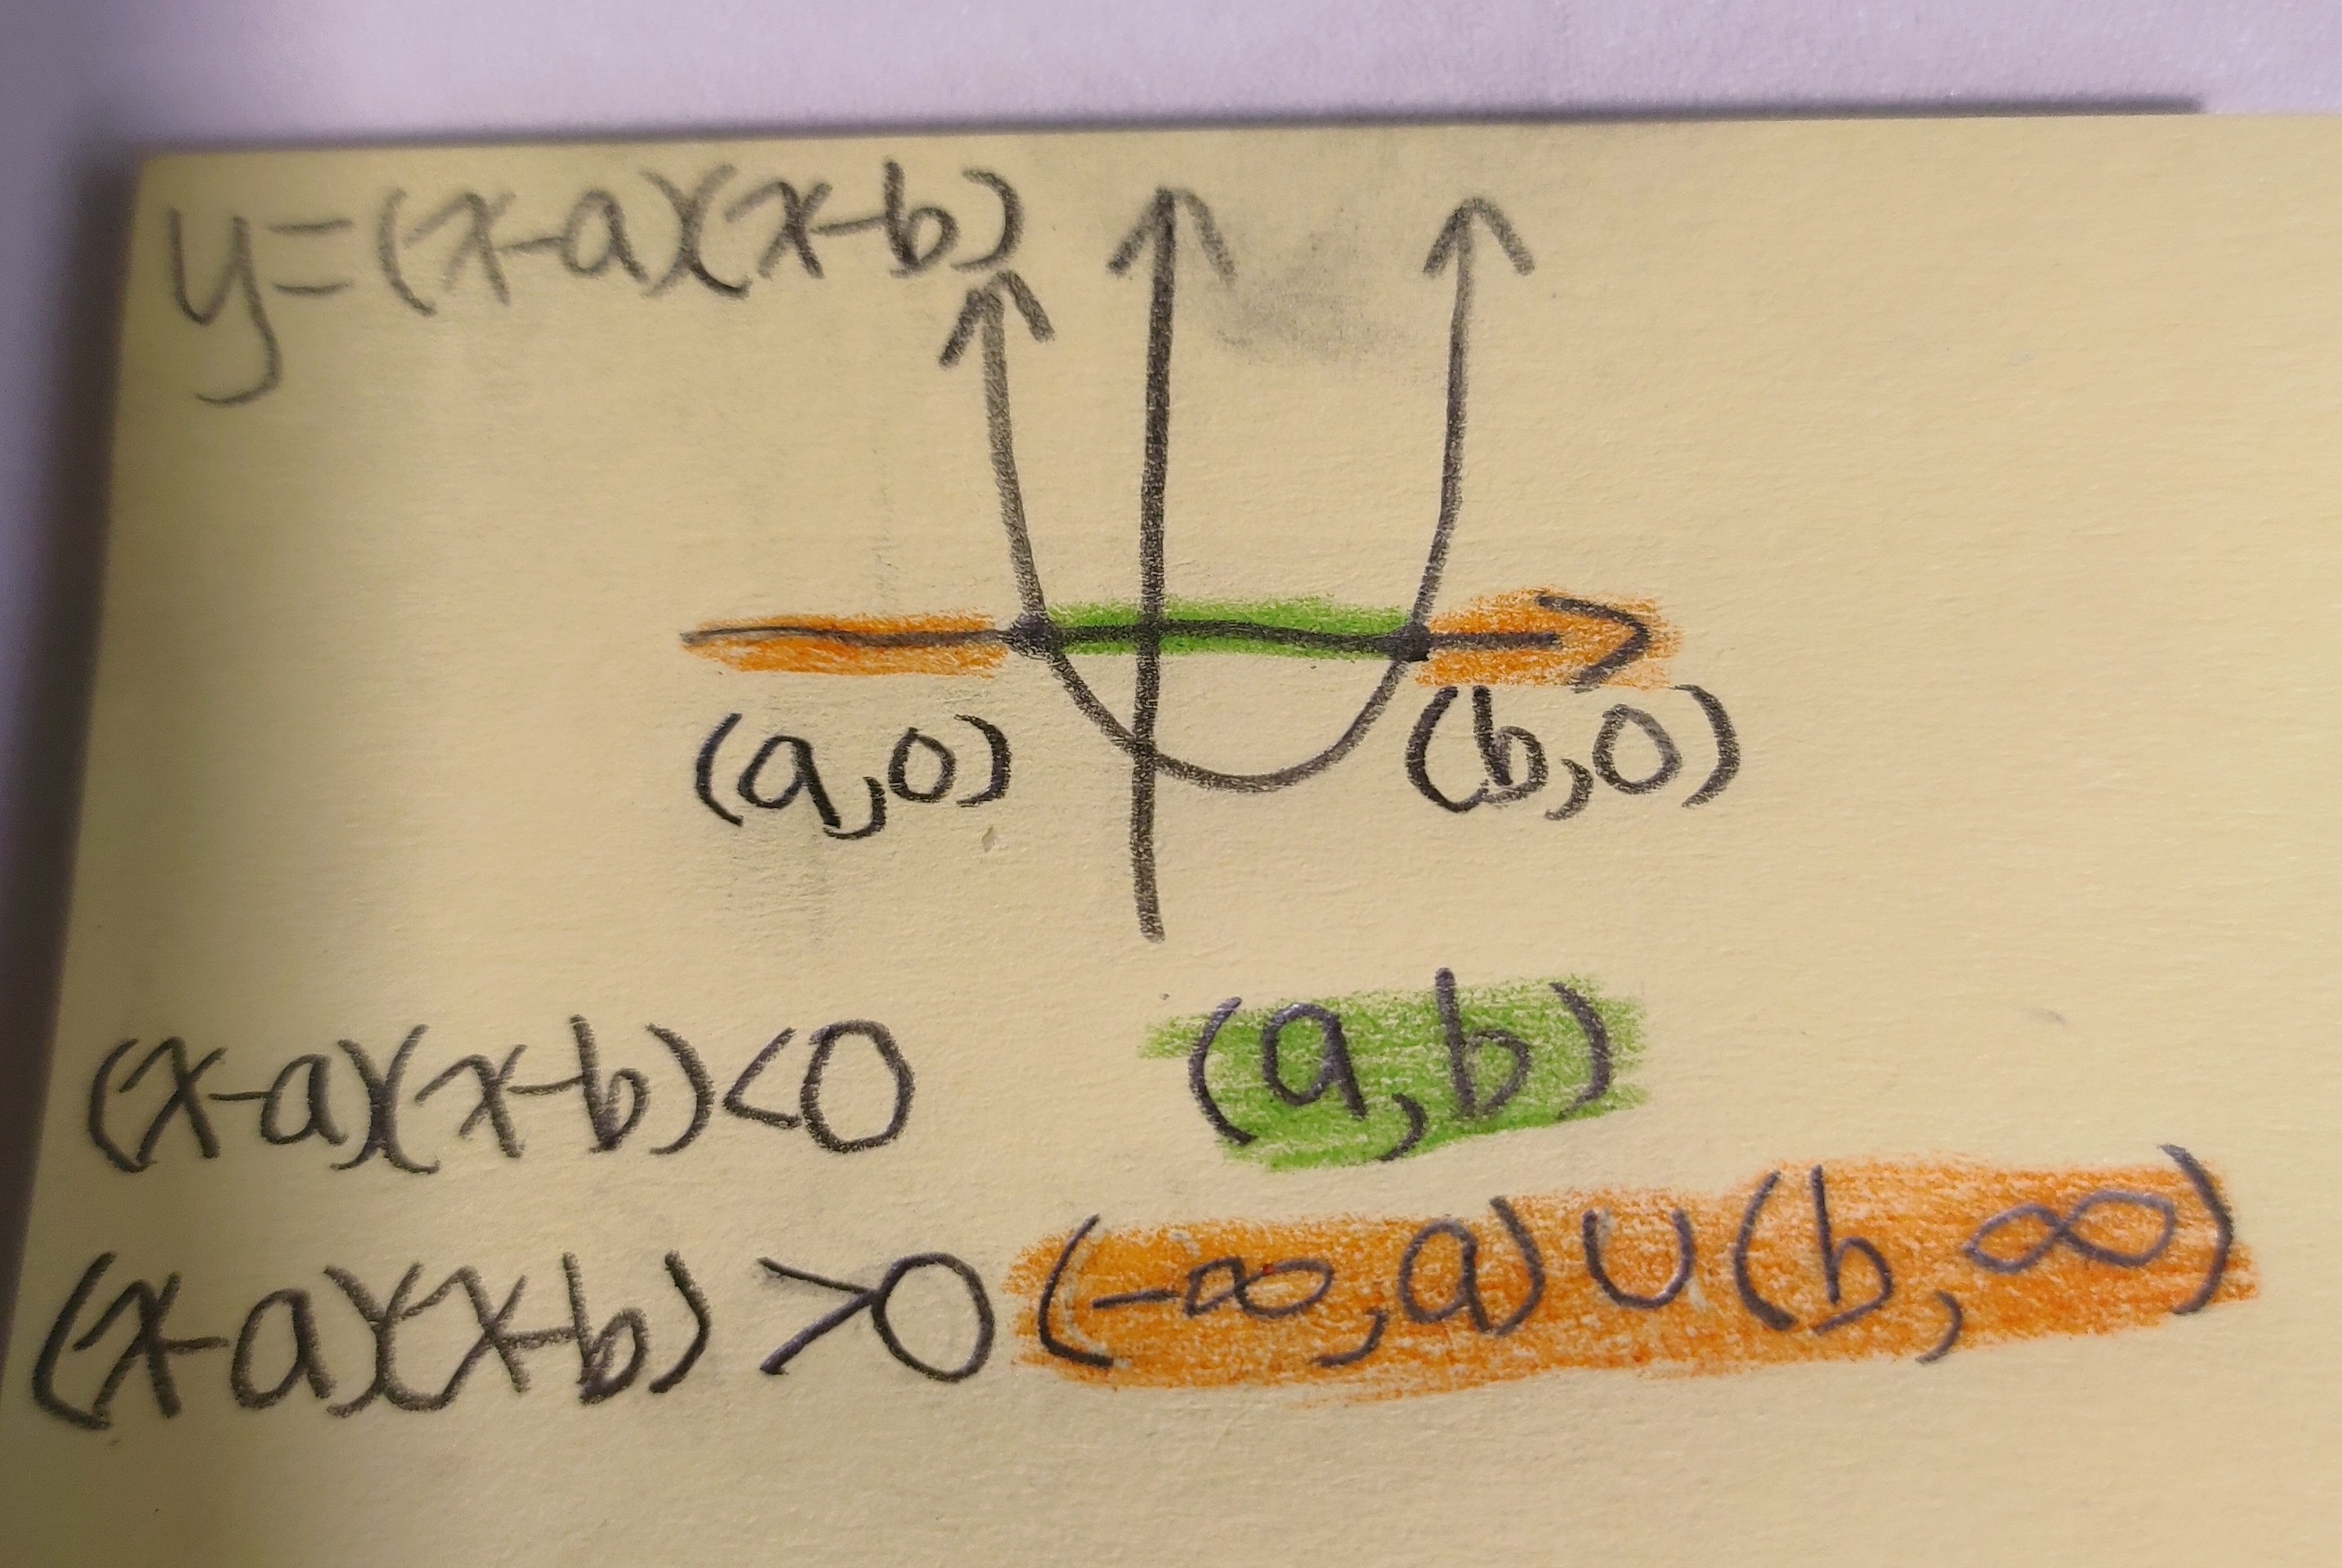 y=(x-a)(x-b)
(a,0) (b,0)
(x-a)(x-b)<0 (a,b)
(x-a)(x-b)>0 (-∞,a)∪(b,∞)